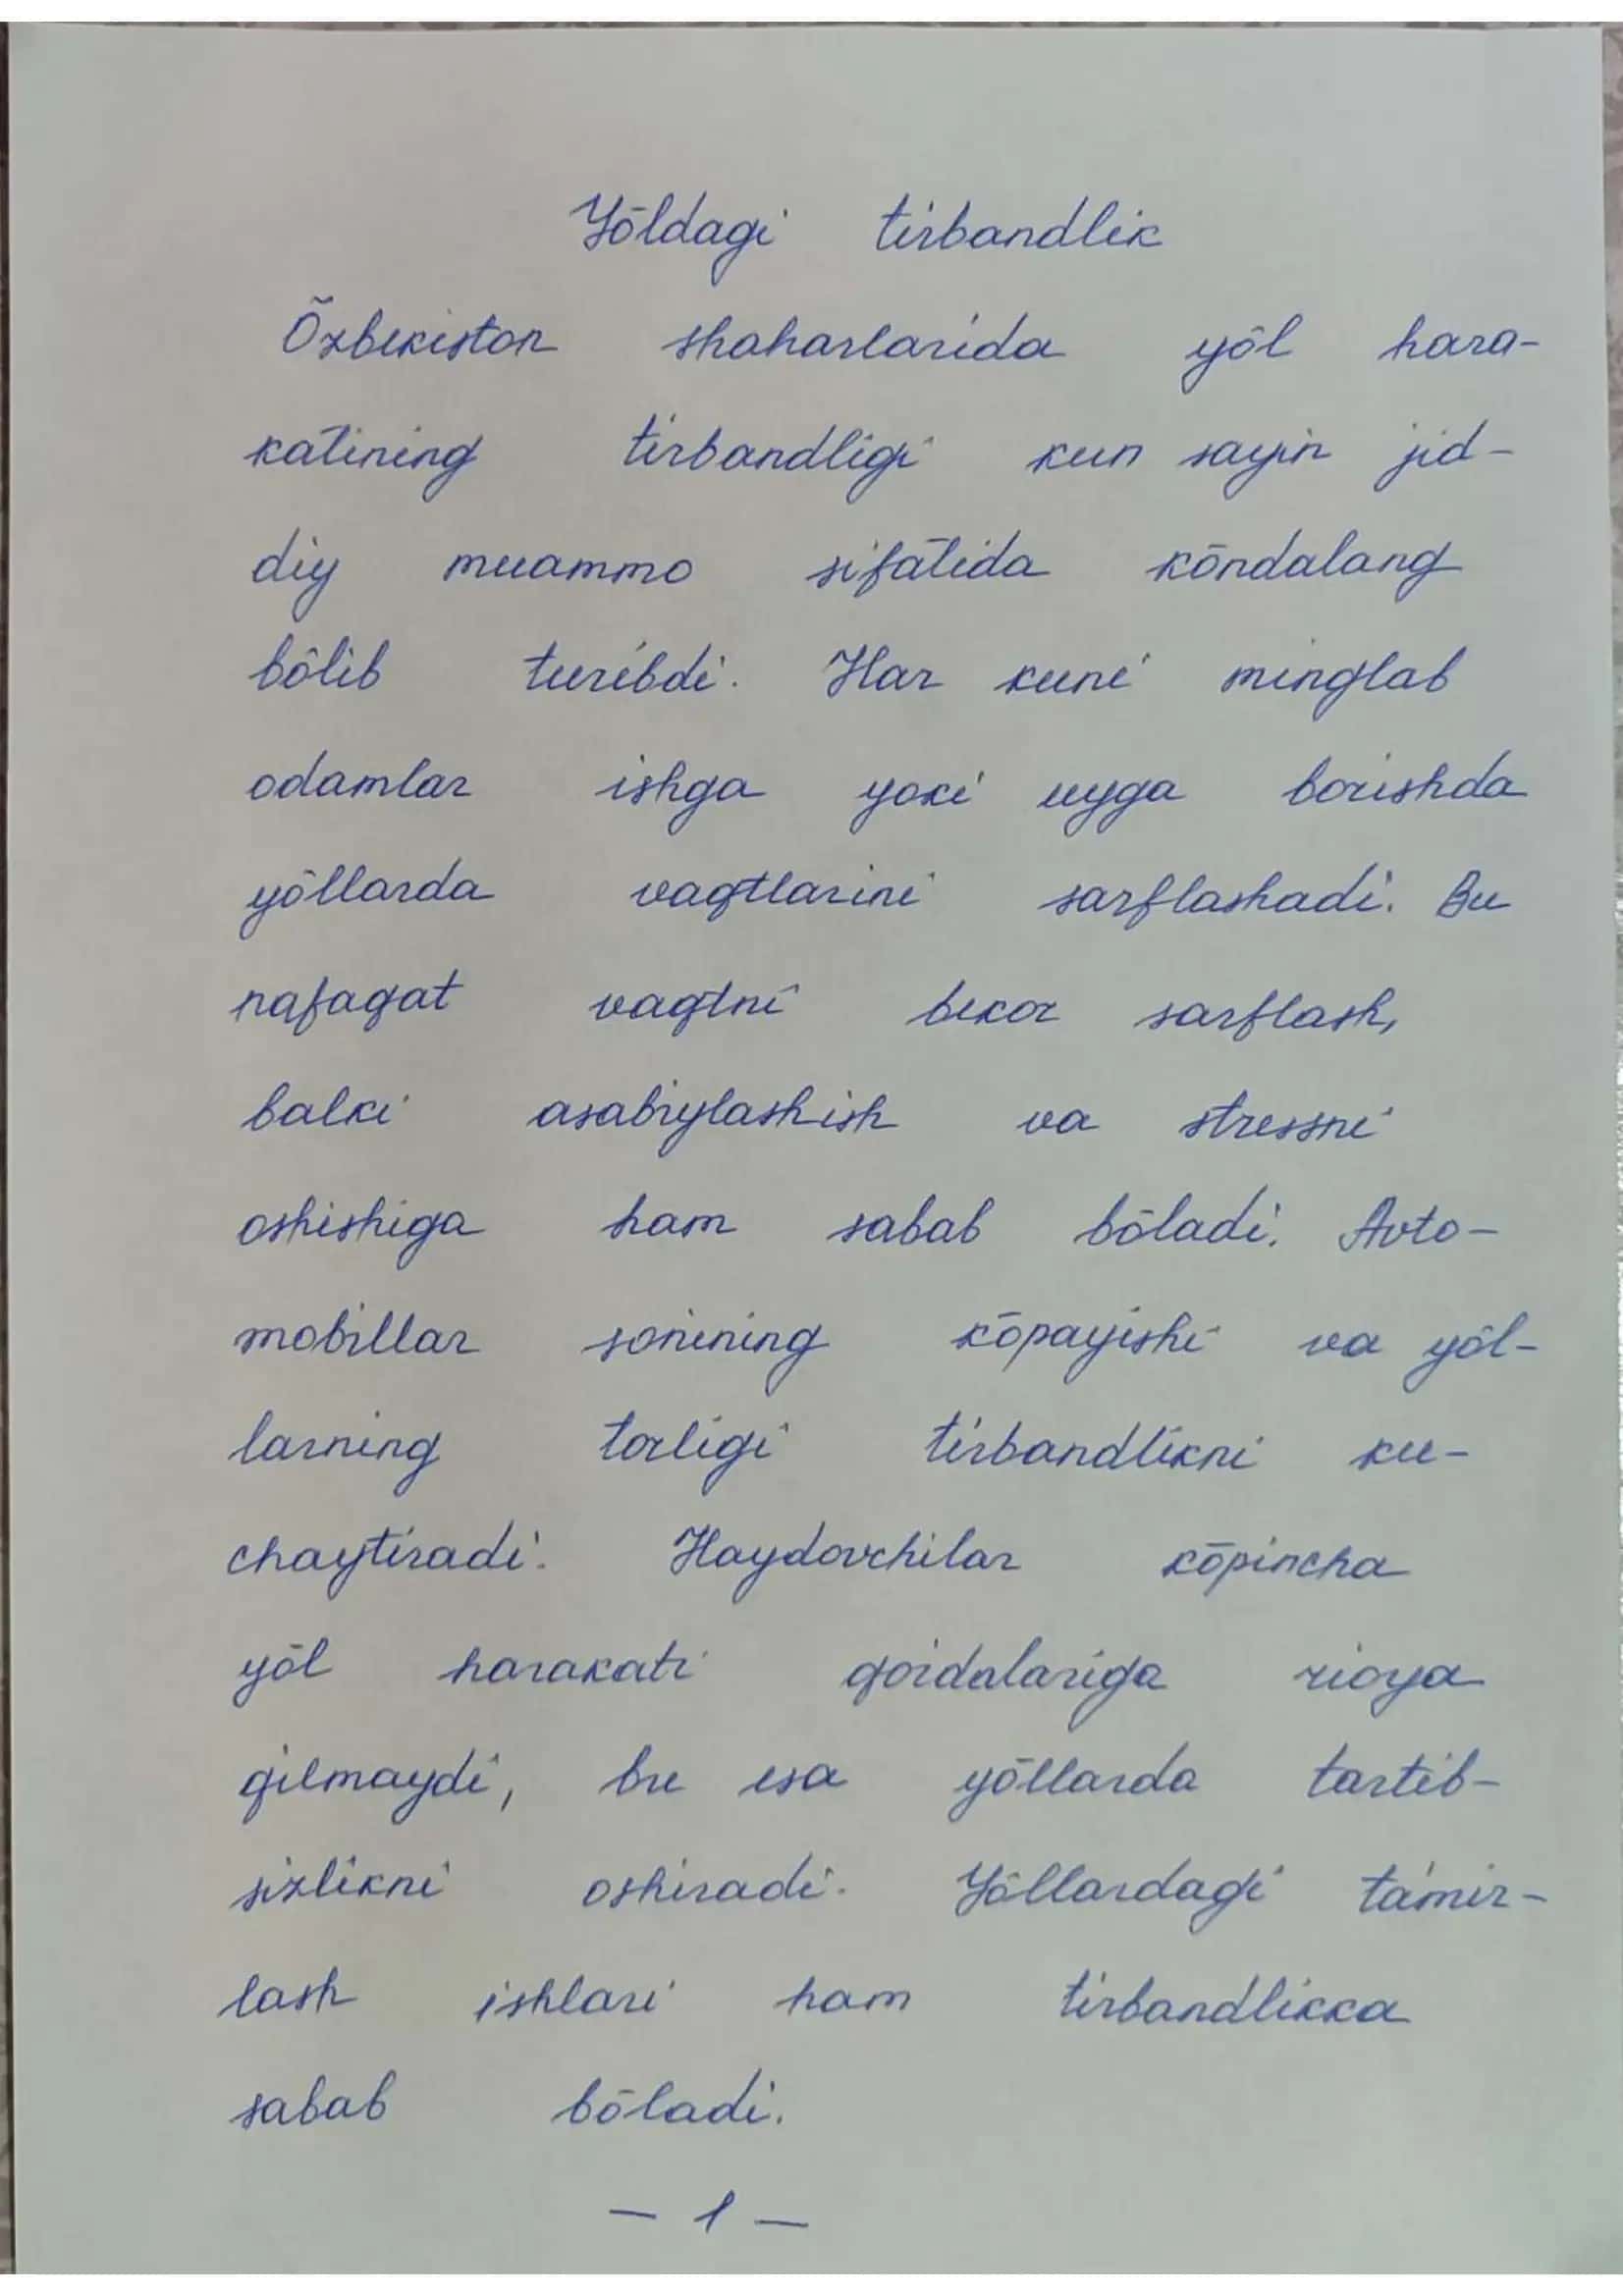 Yõldagi tirbandlik
Õzbekiston shaharlarida yõl hara-
katining tirbandligi kun sayin jid-
diy muammo sifatida kõndalang
bõlib turibdi. Har kuni minglab
odamlar ishga yoki uyga borishda
yõllarda vaqtlarini sarflashadi. Bu
nafaqat vaqtni bekor sarflash,
balki asabiylashish va stressni
oshishiga ham sabab bõladi. Avto-
mobillar sonining kõpayishi va yõl-
larning torligi tirbandlikni ku-
chaytiradi. Haydovchilar kõpincha
yõl harakati qoidalariga rioya
qilmaydi, bu esa yõllarda tartib-
sizlikni oshiradi. Yõllardagi ta'mir-
lash ishlari ham tirbandlikka
sabab bõladi.
- 1 -